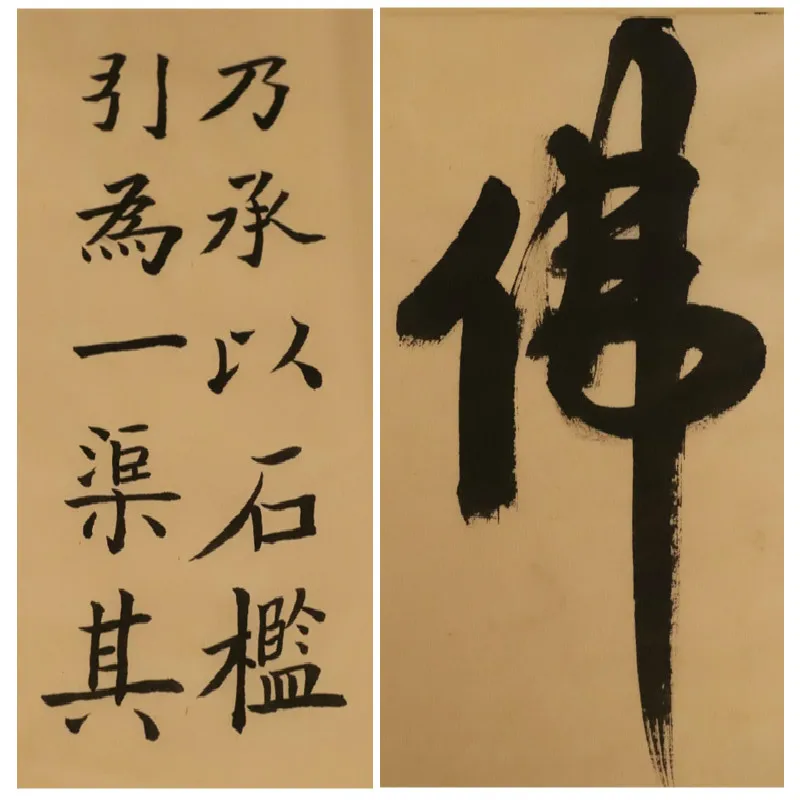 乃承以石檻
引為一渠其
佛